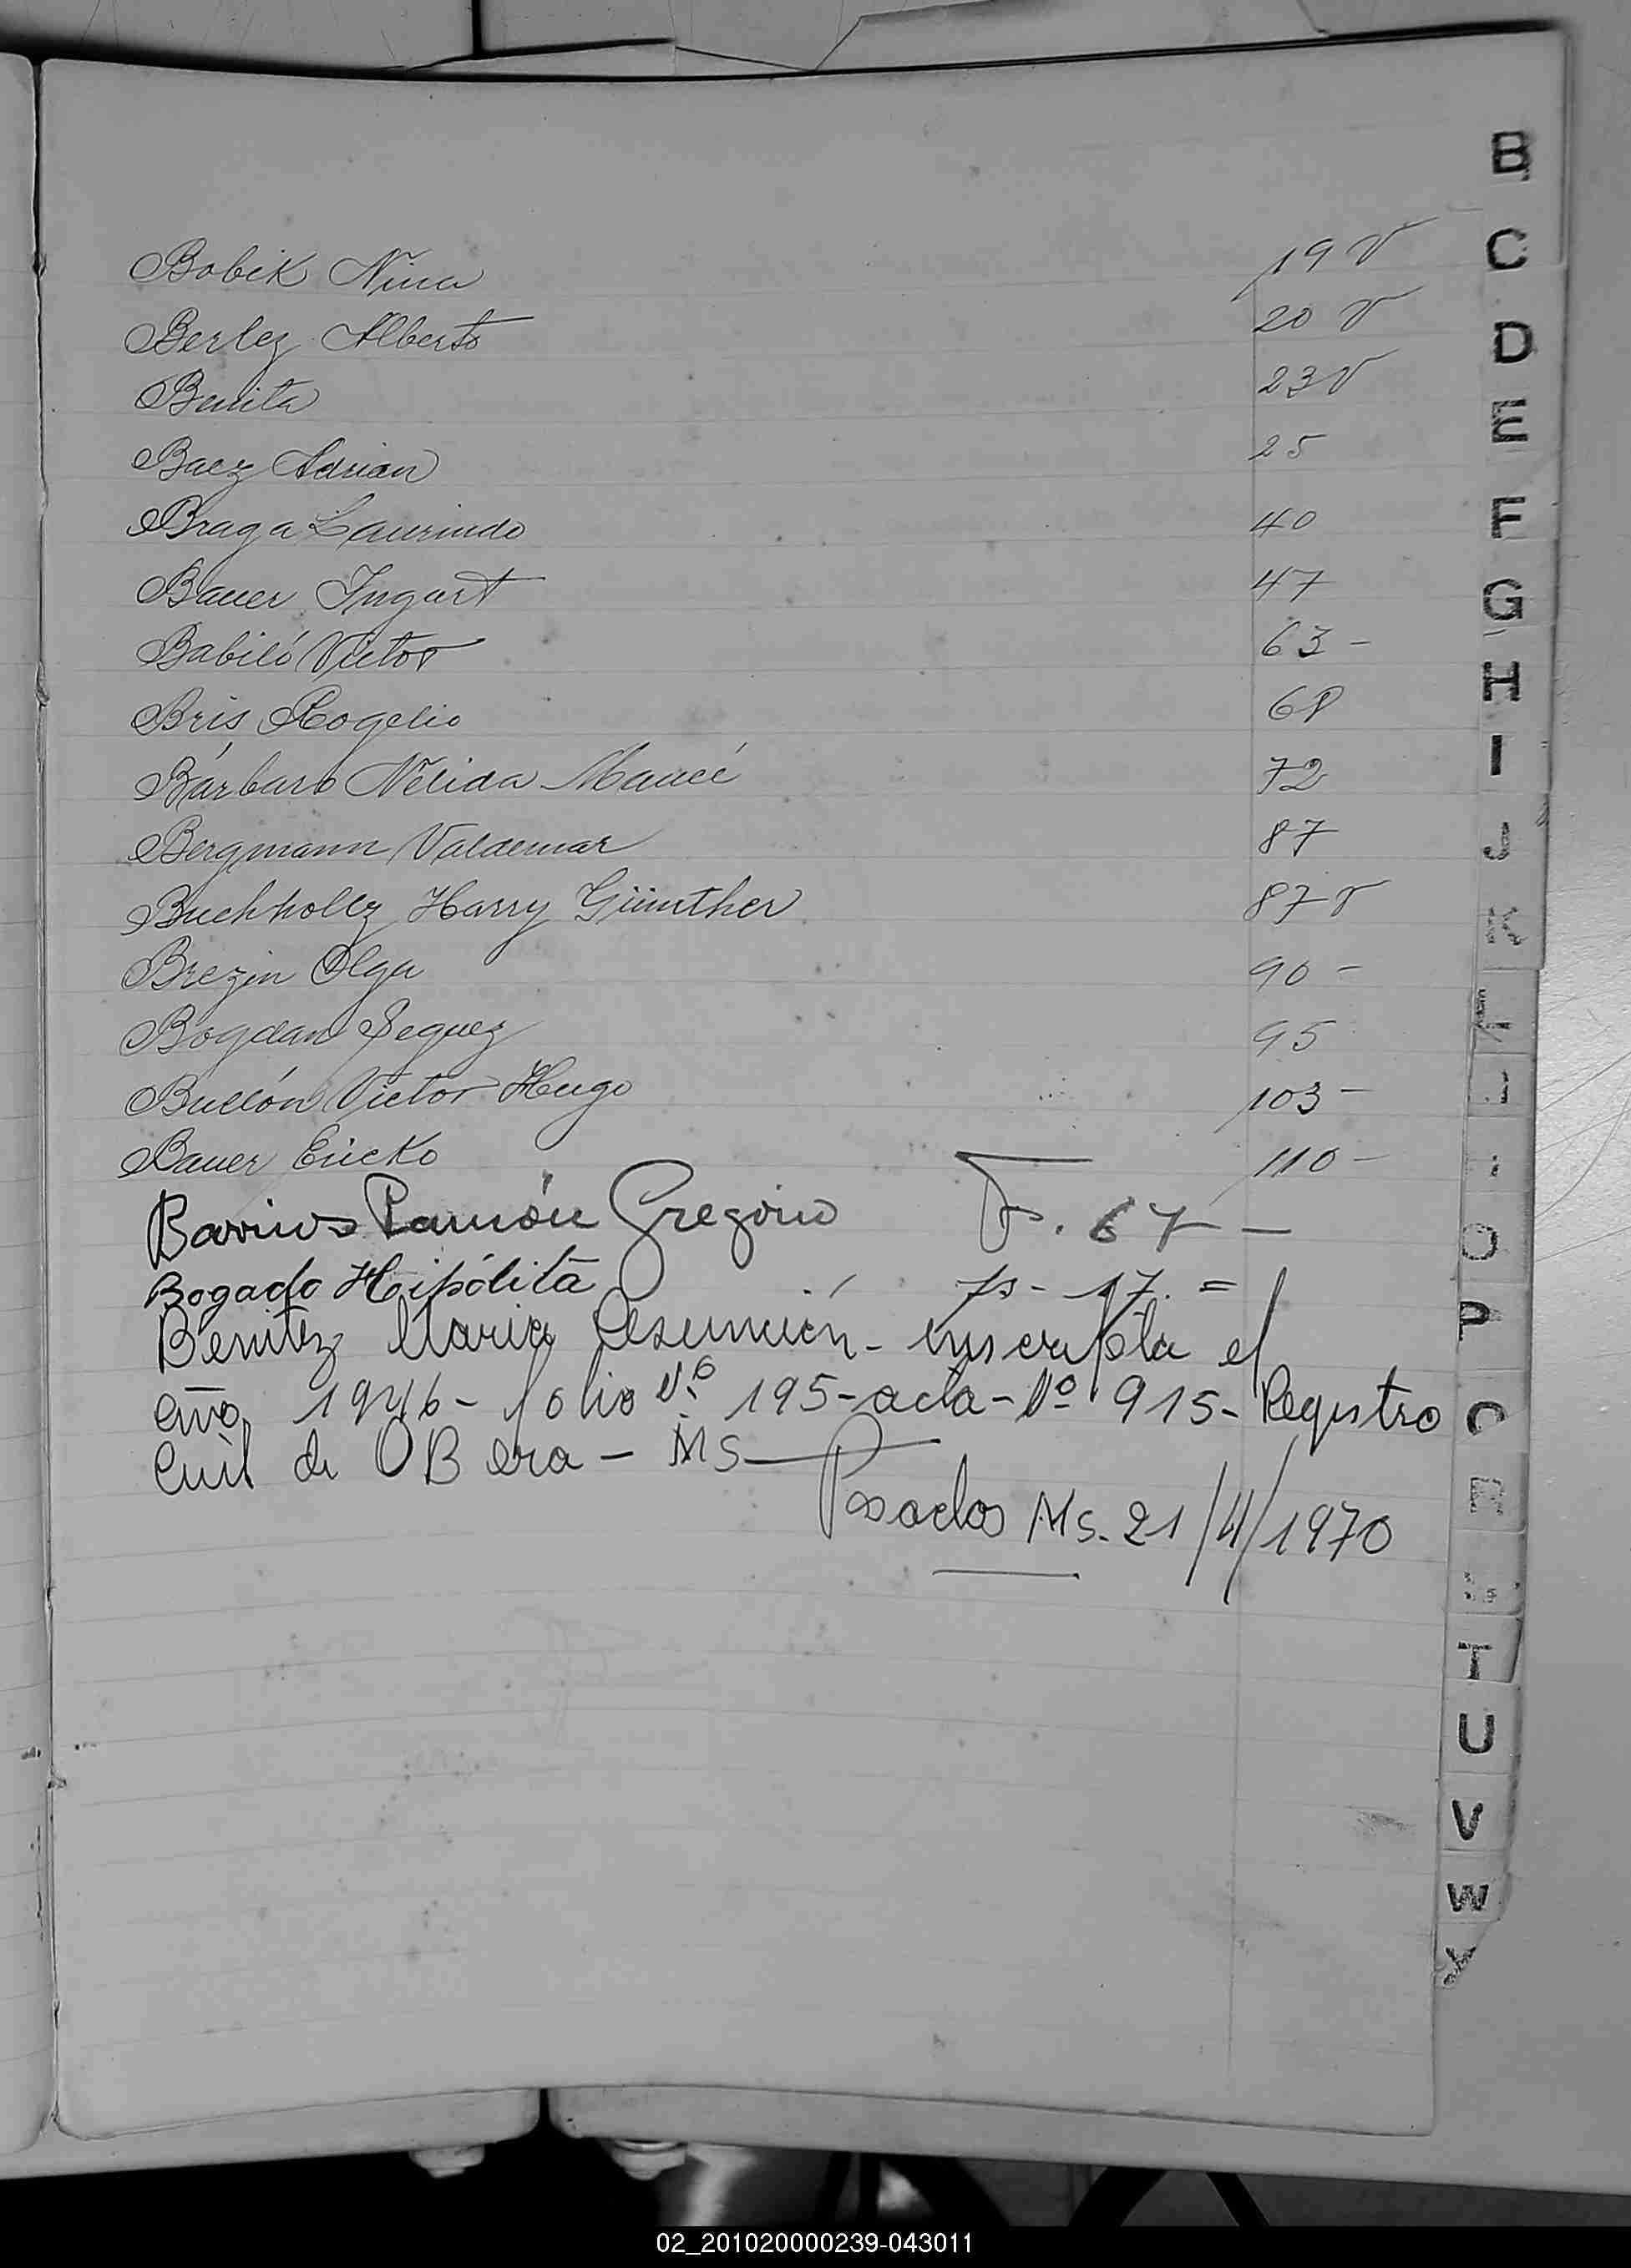 B
Bobik Nina 19 v
C
Berlez Alberto 20 v
D
Benita 23 v
E
Baez Adrian 25
Braga Laurindo 40
F
Bauer Ingart 47
G
Babiló Victor 63 -
H
Bris Rogelio 68
I
Bárbaro Nélida 72
Bergmann Valdemar 87
J
Buchholtz Harry Günther 87 v
K
Brezin Olga 90 -
Bogdan 95
Bullón Victor Hugo 103 -
Bauer Ericko 110 -
Barrios Ramón Gregorio Fs. 67 -
O
Bogado Hipólita fs - 17. =
P
Benitez Maria Asunción - inscripta el
año 1946 - folio Nº 195 - acta - Nº 915 - Registro
Civil de OBera - Ms
Posadas Ms. 21/4/1970
R
T
U
V
W
X
02_201020000239-043011